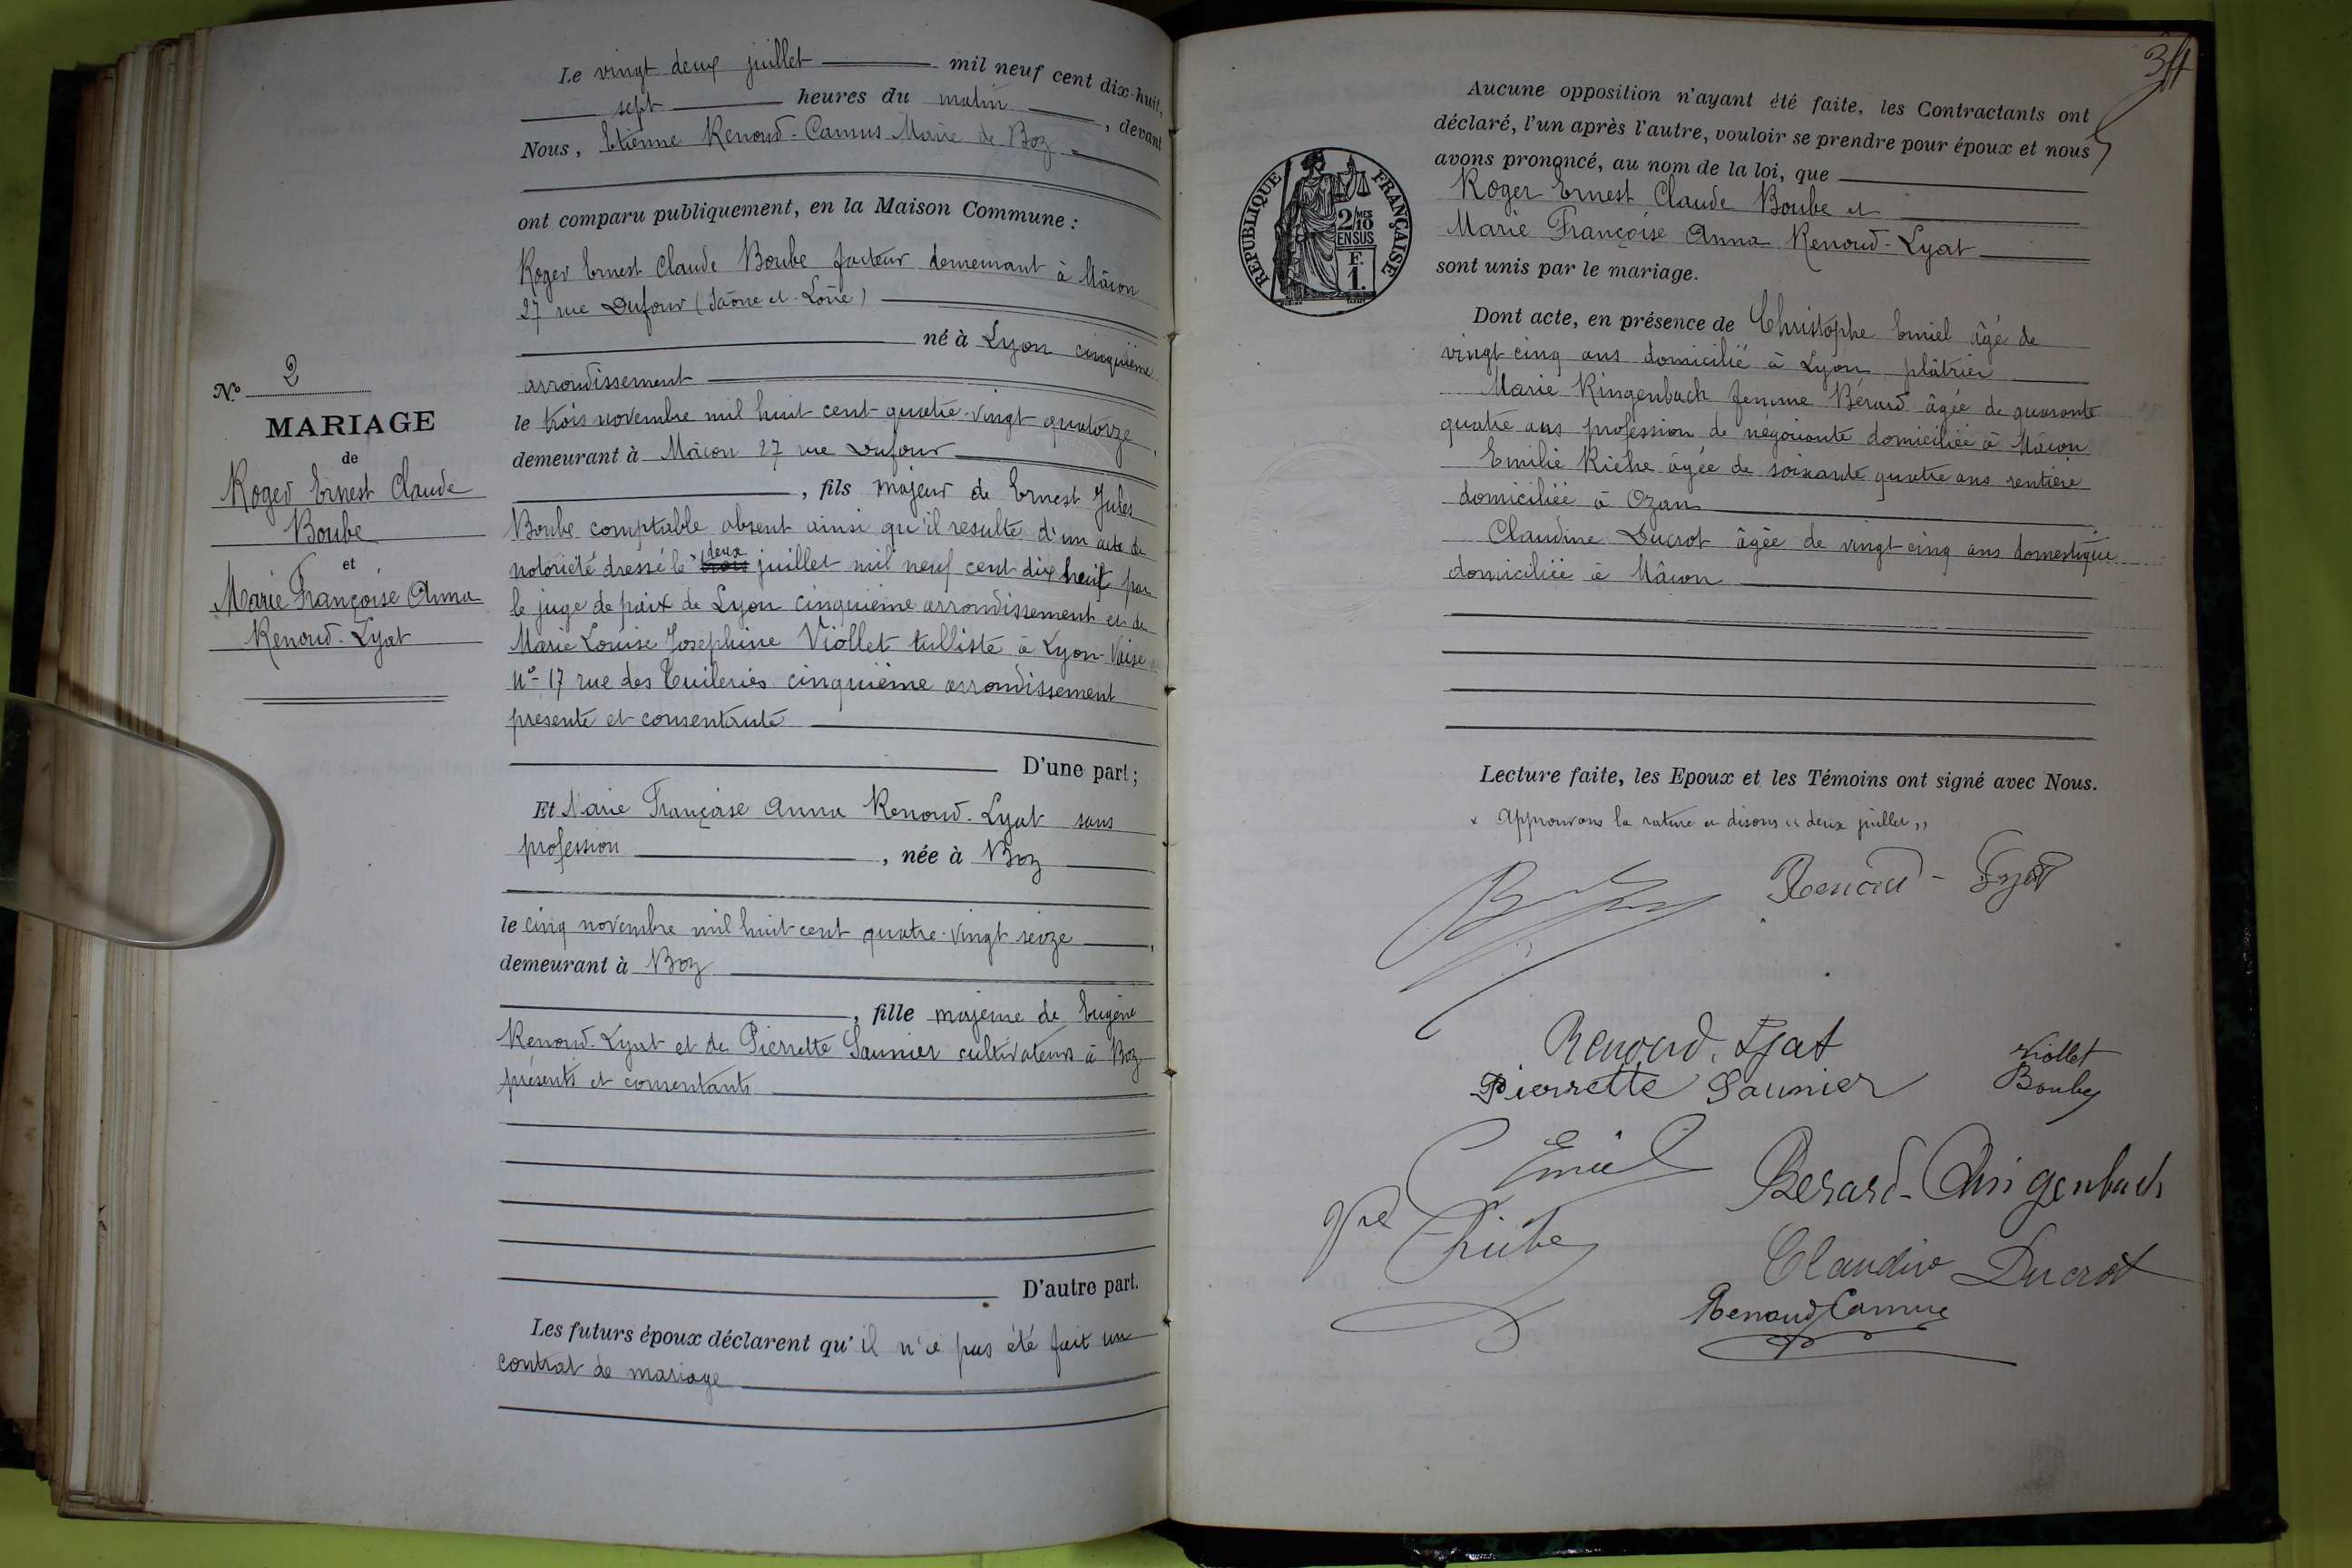 Le vingt deux juillet mil neuf cent dix-huit,
sept heures du matin, devant
Nous, Etienne Renoud-Camus Maire de Boz
ont comparu publiquement, en la Maison Commune :
Roger Ernest Claude Boube facteur demeurant à Mâcon
27 rue Dufour (Saône et Loire)
né à Lyon cinquième
arrondissement
le trois novembre mil huit cent quatre-vingt quatorze,
demeurant à Mâcon 27 rue Dufour
, fils majeur de Ernest Jules
Boube comptable absent ainsi qu'il resulte d'un acte de
deux
notoriété dressé le x trois juillet mil neuf cent dix huit par
le juge de paix de Lyon cinquième arrondissement et de
Marie Louise Josephine Viollet tulliste à Lyon-Vaise
Nº 17 rue des Tuileries cinquième arrondissement
présente et consentante
D'une part ;
Et Marie Françoise Anna Renoud-Lyat sans
profession, née à Boz
le cinq novembre mil huit cent quatre-vingt seize,
demeurant à Boz
, fille majeure de Eugène
Renoud-Lyat et de Pierrette Saunier cultivateurs à Boz
présents et consentants
D'autre part.
Les futurs époux déclarent qu'il n'a pas été fait un
contrat de mariage
Nº 2
MARIAGE
de
Roger Ernest Claude
Boube
et
Marie Françoise Anna
Renoud-Lyat
Aucune opposition n'ayant été faite, les Contractants ont
déclaré, l'un après l'autre, vouloir se prendre pour époux et nous
avons prononcé, au nom de la loi, que
Roger Ernest Claude Boube et
Marie Françoise Anna Renoud-Lyat
sont unis par le mariage.
RÉPUBLIQUE FRANÇAISE
2/10 MES
EN SUS
F.
1.
Dont acte, en présence de Christophe Emiel âgé de
vingt cinq ans domicilié à Lyon plâtrier
Marie Ringenbach femme Bérard âgée de quarante
quatre ans profession de négociante domiciliée à Mâcon
Emilie Riche âgée de soixante quatre ans rentière
domiciliée à Ozan
Claudine Ducrot âgée de vingt-cinq ans domestique
domiciliée à Mâcon
Lecture faite, les Epoux et les Témoins ont signé avec Nous.
x Approuvons la rature et disons "deux juillet"
Renoud-Lyat
Renoud. Lyat
Viollet
Pierrette Saunier
Boube
Emiel
Berard-Ringenbach
Vve Riche
Claudine Ducrot
Renoud Camus